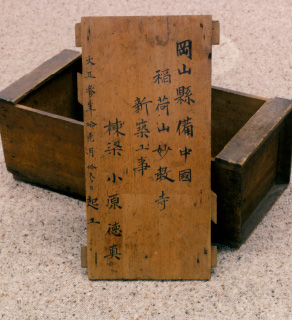 岡山縣備中國
稲荷山妙教寺
新築工事
棟梁 小原徳真
大正 年 月 日 起工